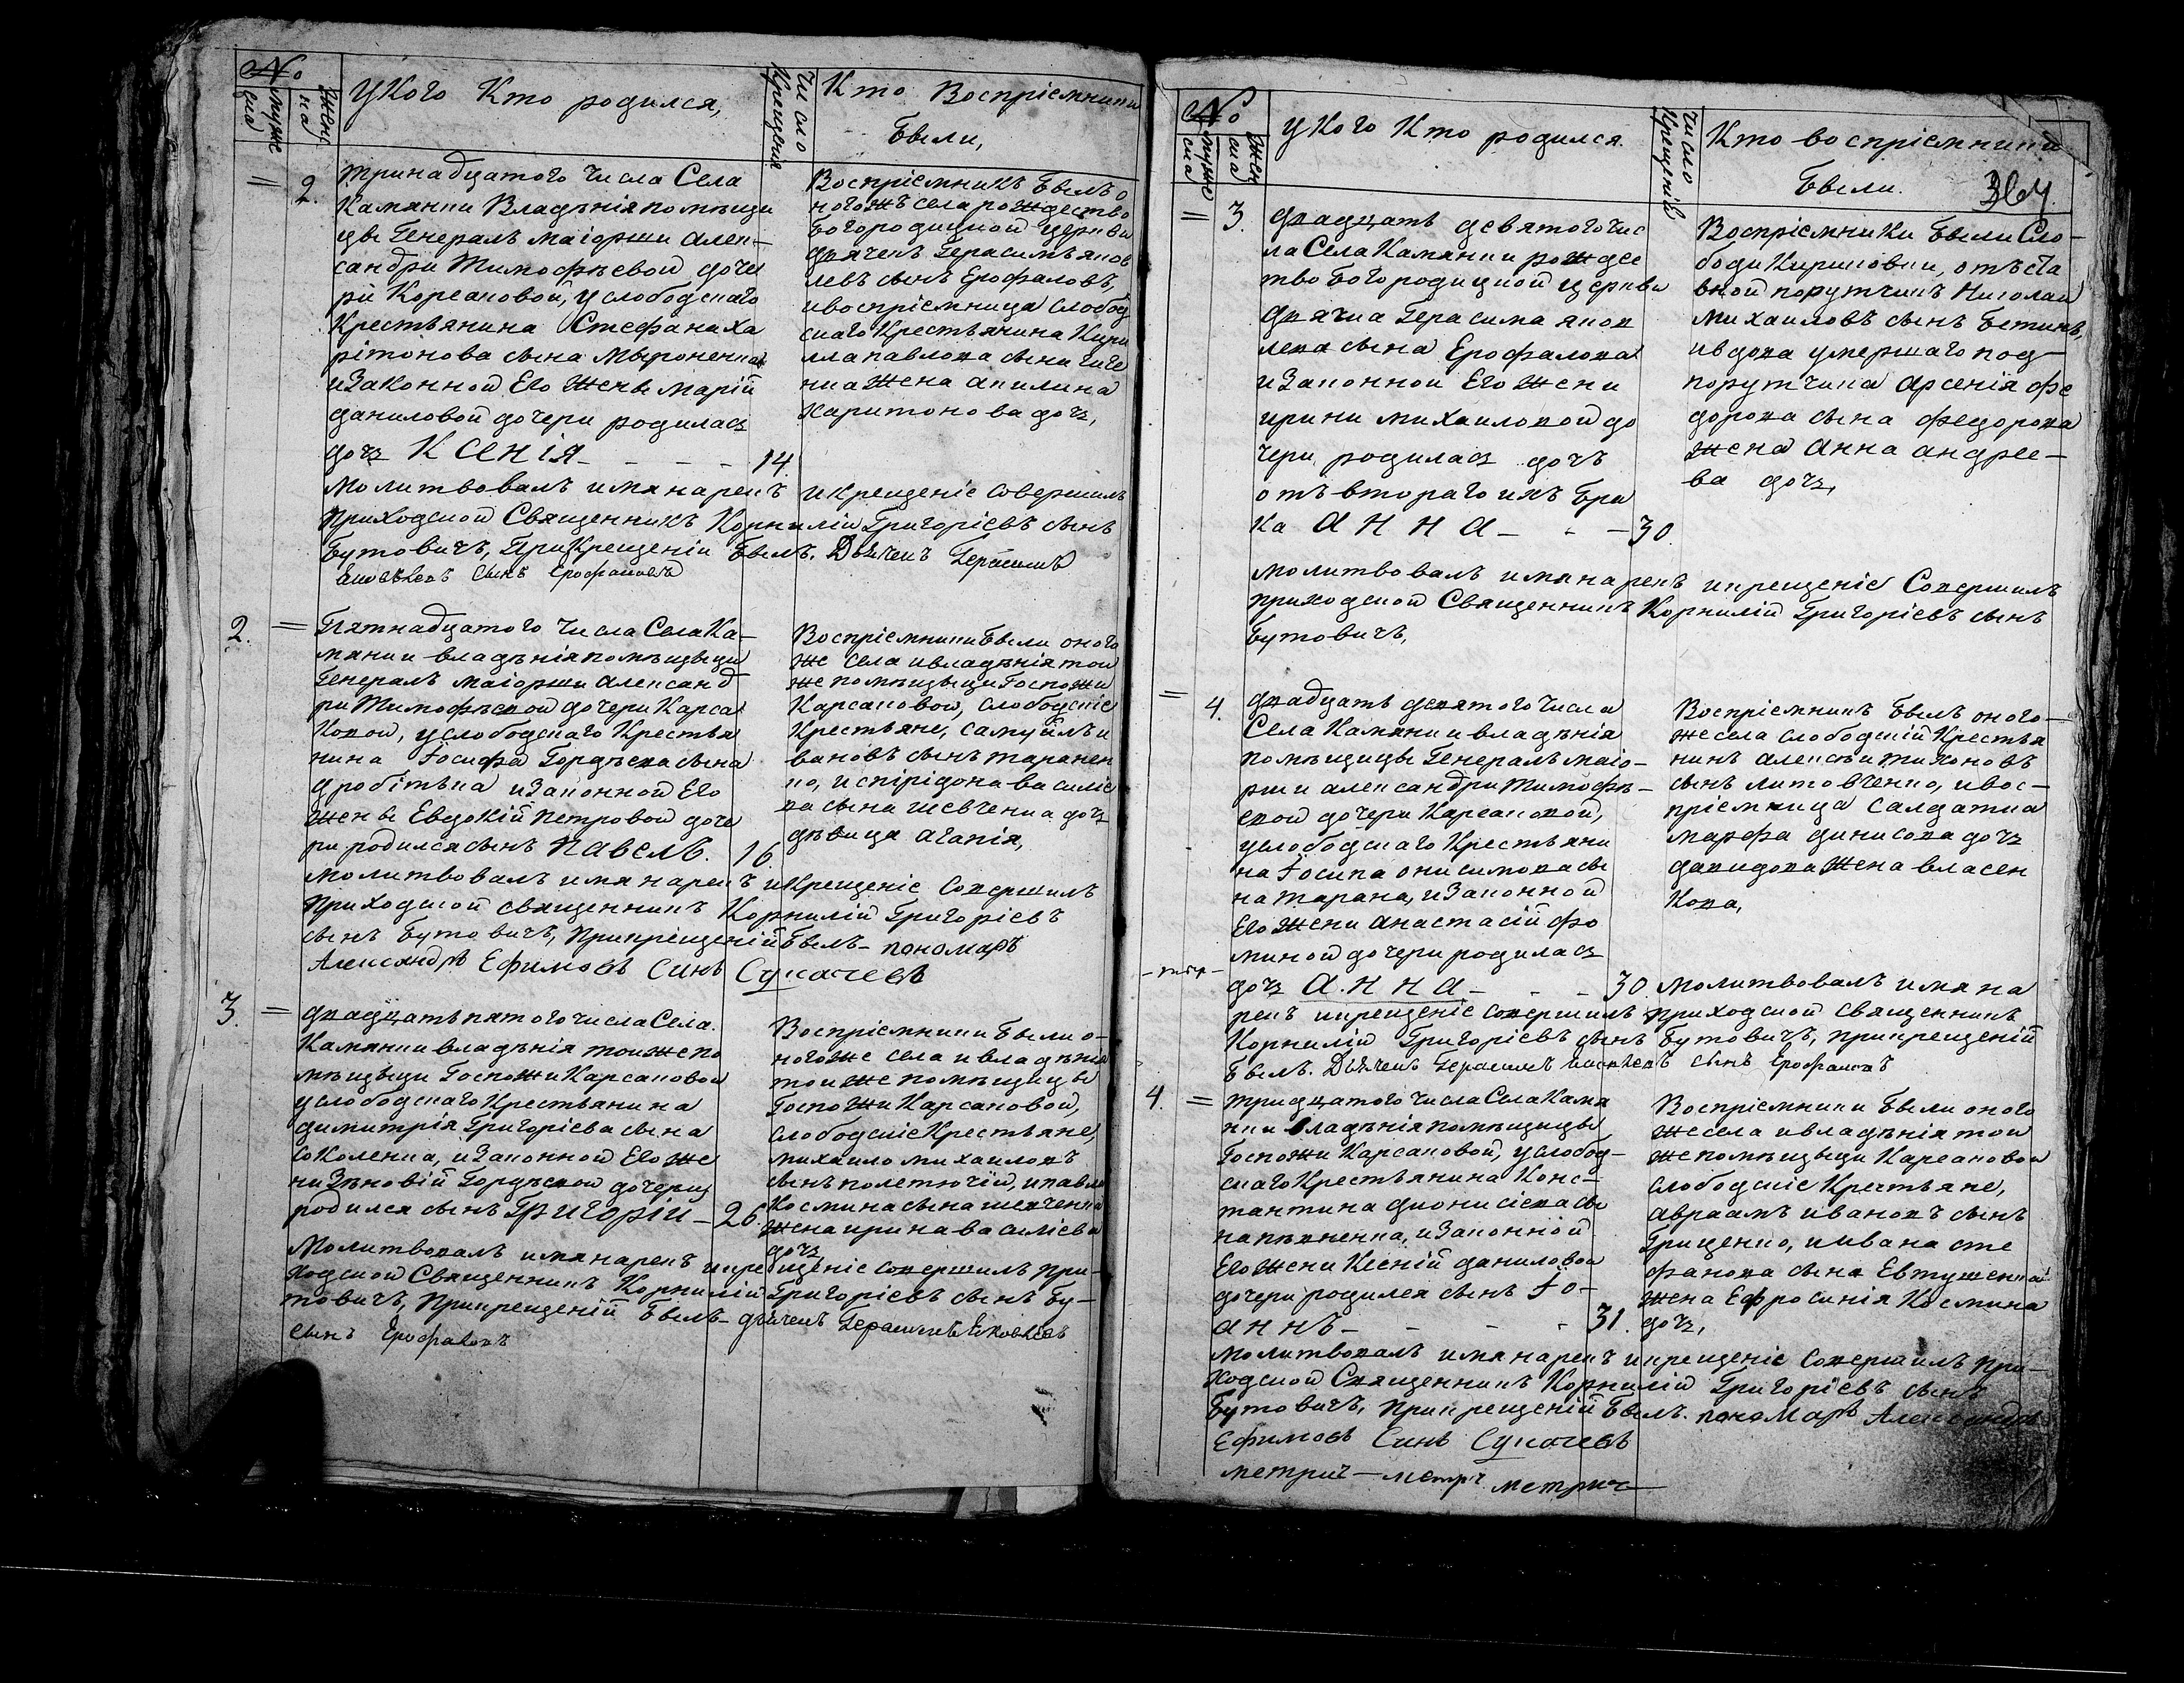 №
мужеска
женска
У Кого Кто родился,
Число Крещенія
Кто Воспріемники
Были,
= 2.
Тринадцатого Числа Села
Камянки Владѣнія помѣщи
цы Генералъ маіорши Алек-
сандри Тимофѣевой доче
рѣ Корсаковой, услободскаго
Крестьянина Стефана Ха
рітонова сына Мыроненка
и Законной Его Жены Маріи
Даниловой дочери родилась
дочь Ксенія - - - - 14
Воспріемникъ Былъ о
ногожъ села рождество
Богородицкой церкви
дьячекъ Герасимъ яков
левъ сынъ Ерофаловъ,
и воспріемница слобод
скаго Крестьянина Кири
лла павлова сына
жена акилина
Харитонова дочь,
Молитвовалъ имя нарекъ и Крещеніе совершилъ
приходской Священникъ Корнилій Григоріевъ сынъ
Бутовичъ, При Крещеніи Былъ. Дьячекъ Герасимъ
Яковлевъ сынъ Ерофаловъ
2. =
Пятнадцатого Числа Села Ка-
мянки владѣнія помѣщыци
Генералъ маіорши Александ
ри Тимофѣевой дочери Карса
ковой, услободскаго Крестья
нина Іосифа Гордѣева сына
Дробітька и Законной Его
Жены Евдокій Петровой доче
ри родился сынъ Павелъ. 16.
Воспріемники Были оного
же села и владѣнія той
же помѣщыци Госпожи
Карсаковой, слободскіе
Крестьяне, Самуйлъ и
вановъ сынъ таранен
ко, и спірідона василіе
ва сына шевченка дочь
дѣвица агапія,
Молитвовалъ имя нарекъ и Крещеніе совершилъ
приходской священникъ Корнилій Григоріевъ
сынъ Бутовичъ, При крещеній Былъ- пономарь
Александръ Ефимовъ Синъ Сукачевъ
3. =
Двадцать пятого числа Села
Камянки владѣнія той же по
мѣщыци Госпожи Карсаковой
услободскаго Крестьянина
димитрія Григоріева сына
Соколенка, и Законной Его Же
ни Зѣновій Гордѣевой дочери
родился сынъ Григорій - 26.
Воспріемники Были о-
ногоже села и владѣнія
той же помѣщицы
Госпожи Карсаковой,
слободскіе Крестьяне,
михаило михаиловъ
сынъ полетючій, и павла
Космина сына шевченка
жена ирина василіева
дочь
Молитвовалъ имя нарекъ и крещеніе совершилъ при-
ходской Священникъ Корнилій Григоріевъ сынъ Бу-
товичъ, При крещеній Былъ- дьячекъ Герасимъ Яковлевъ
сынъ Ерофаловъ
№
мужеска
женска
У Кого Кто родился.
Число Крещеній
Кто воспріемники
Были.
364
= 3.
Двадцать девятого чис
ла Села Камянки рождес
тво Богородицкой церкви
Дьячка Герасима яков
лева сына Ерофалова
и Законной Его Жени
ирини Михаиловой до
чери, родилась дочъ
отъ второго ихъ Бра
ка Анна - - - 30.
Воспріемники Были Сло-
боди Кириковки, отъста
вной порутчикъ Николай
Михаиловъ сынъ Бетинъ,
и вдова умершаго под-
порутчика Арсенія фе
дорова сына федорова
жена Анна андрее-
ва дочь,
Молитвовалъ имя нарекъ и крещеніе Совершилъ
приходской Священникъ Корнилій Григоріевъ сынъ
Бутовичъ,
= 4.
Двадцать девятого числа
Села Камянки владѣнія
помѣщицы Генералъ маіо-
рши александри Тимофѣ-
евой дочери Карсаковой,
услободскаго Крестьяни
на Іосипа онисимова сы
на тарана, и Законной
Его Жени Анастасій фо
миной дочери родилась
дочь Анна - - - 30.
Воспріемникъ Былъ оного-
же села слободскій Крестья
нинъ алексѣи тихоновъ
сынъ литовченко, и вос-
пріемница Салдатка
марфа динисова дочь
давидова Жена власен
Кова,
Молитвовалъ имя на
рекъ и крещеніе совершилъ приходской священникъ
Корнилій Григоріевъ сынъ Бутовичъ, при крещеній
Былъ. Дьячекъ Герасимъ Яковлевъ сынъ Ерофаловъ
4. =
Тридцатого Числа Села Камя
нки владѣнія помѣщицы
Госпожи Карсаковой, услобод-
скаго Крестьянина Конс-
тантина дионисіева сы
на пѣвненка, и Законной
Его Жени Ксеній даниловой
дочери родился сынъ Іо-
аннъ - - - - 31.
Воспріемники Были оного
же села и владѣнія той
же помѣщыци Карсаковой
слободскіе Крестьяне,
Авраамъ ивановъ сынъ
Грищенко, и ивана сте
фанова сына Евтушенка
жена Ефросинія Космина
дочь,
Молитвовалъ имя нарекъ и крещеніе совершилъ при-
ходской Священникъ Корнилій Григоріевъ сынъ
Бутовичъ, При крещеній Былъ. пономарь Александръ
Ефимовъ Синъ Сукачевъ
метрич- метрич метрич